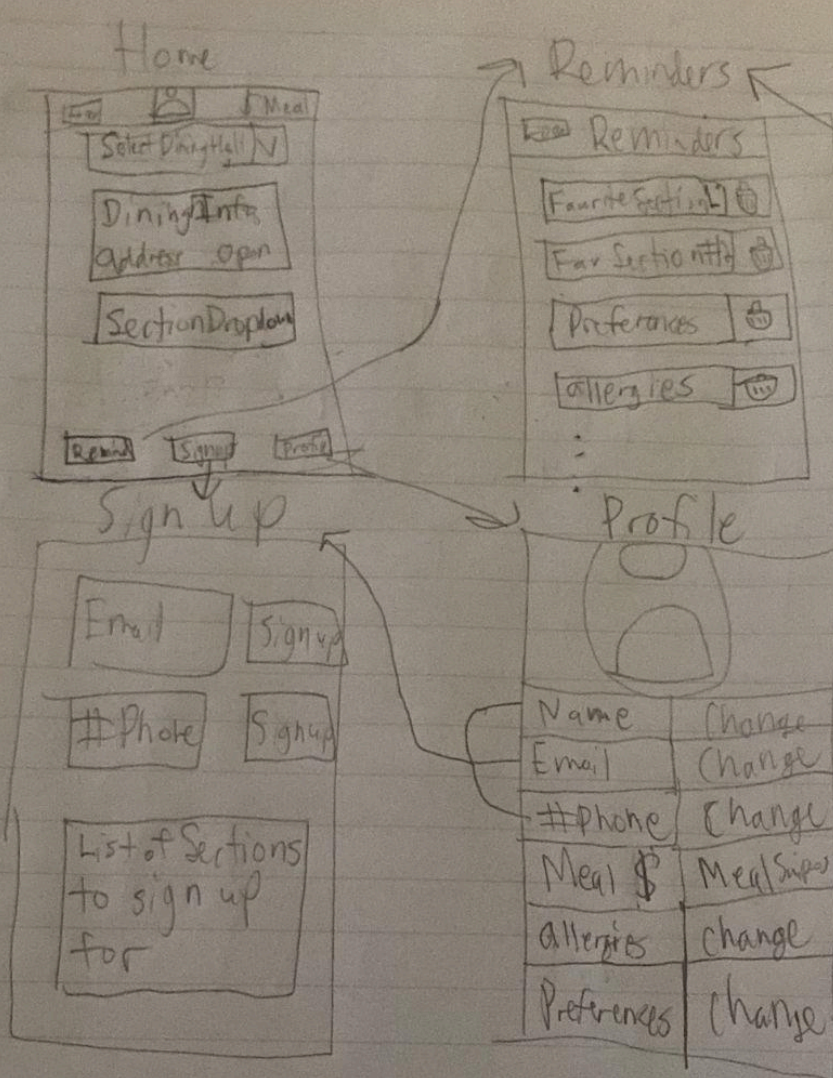 Home
Meal
Select Dining Hall V
Dining Info
address Open
Section Dropdown
Remind Signup Profile
Reminders
Reminders
Favorite Section
Fav Section
Preferences
allergies
Sign up
Email Signup
#Phone Signup
List of Sections
to sign up
for
Profile
Name Change
Email Change
#Phone Change
Meal $ Meal
allergies change
Preferences Change